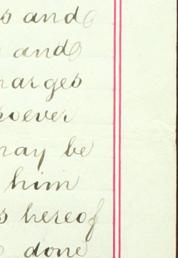 s and
and
harges
soever
may be
him
s hereof
done